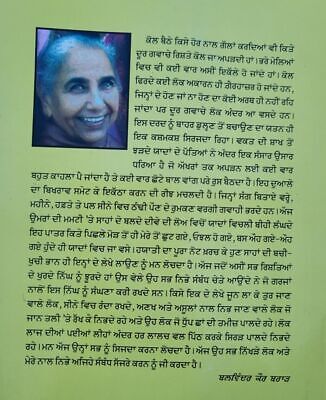 ਕੋਲ ਬੈਠੇ ਕਿਸੇ ਹੋਰ ਨਾਲ ਗੱਲਾਂ ਕਰਦਿਆਂ ਵੀ ਕਿਤੇ
ਦੂਰ ਗਵਾਚੇ ਰਿਸ਼ਤੇ ਕੋਲ ਜਾ ਅਪੜਦੀ ਹਾਂ। ਭਰੇ ਮੇਲਿਆਂ
ਵਿਚ ਵੀ ਕਈ ਵਾਰ ਅਸੀਂ ਇਕੱਲੇ ਹੋ ਜਾਂਦੇ ਹਾਂ। ਕੋਲ
ਫਿਰਦੇ ਕਈ ਲੋਕ ਅਕਾਰਨ ਹੀ ਗੈਰਹਾਜ਼ਰ ਹੋ ਜਾਂਦੇ ਹਨ,
ਜਿਨ੍ਹਾਂ ਦੇ ਹੋਣ ਜਾਂ ਨਾ ਹੋਣ ਦਾ ਕੋਈ ਅਰਥ ਹੀ ਨਹੀਂ ਰਹਿ
ਜਾਂਦਾ ਪਰ ਦੂਰ ਗਵਾਚੇ ਲੋਕ ਅੰਦਰ ਆ ਵਸਦੇ ਹਨ।
ਇਸ ਦਰਦ ਨੂੰ ਬਾਹਰ ਡੁਲ੍ਹਣ ਤੋਂ ਬਚਾਉਣ ਦਾ ਯਤਨ ਹੀ
ਇਕ ਕਸ਼ਮਕਸ਼ ਸਿਰਜਦਾ ਰਿਹਾ। ਵਕਤ ਦੀ ਸ਼ਾਖ ਤੋਂ
ਝੜਦੇ ਯਾਦਾਂ ਦੇ ਪੱਤਿਆਂ ਨੇ ਅੰਦਰ ਇਕ ਸੰਸਾਰ ਉਸਾਰ
ਧਰਿਆ ਹੈ ਜੋ ਅੱਖਰਾਂ ਤਕ ਅਪੜਨ ਲਈ ਕਈ ਵਾਰ
ਬਹੁਤ ਕਾਹਲਾ ਪੈ ਜਾਂਦਾ ਹੈ ਤੇ ਕਈ ਵਾਰ ਛੋਟੇ ਬਾਲ ਵਾਂਗ ਪਰੇ ਰੁਸ ਬੈਠਦਾ ਹੈ। ਇਹ ਦੁਆਲੇ
ਦਾ ਬਿਖਰਾਵ ਸਮੇਟ ਕੇ ਇਕੱਠਾ ਕਰਨ ਦੀ ਰੀਝ ਮਚਲਦੀ ਹੈ। ਜਿਨ੍ਹਾਂ ਸੰਗ ਬਿਤਾਏ ਵਰ੍ਹੇ,
ਮਹੀਨੇ, ਹਫ਼ਤੇ ਤੇ ਪਲ ਸੀਨੇ ਵਿਚ ਠੰਢੀ ਪੌਣ ਦੇ ਰੁਮਕਣ ਵਰਗੀ ਗਾਵਾਹੀ ਭਰਦੇ ਹਨ। ਅੱਜ
ਉਮਰਾਂ ਦੀ ਮਮਟੀ 'ਤੇ ਸਾਹਾਂ ਦੇ ਬਲਦੇ ਦੀਵੇ ਦੀ ਲੋਅ ਵਿਚੋਂ ਯਾਦਾਂ ਵਿਚਲੀ ਬੀਹੀ ਲੰਘਦੇ
ਇਹ ਪਾਤਰ ਕਿਤੇ ਪਿਛਲੇ ਮੋੜ ਤੋਂ ਹੀ ਮੇਰੇ ਤੋਂ ਛੁਟ ਗਏ, ਓਝਲ ਹੋ ਗਏ, ਬਸ ਔਹ ਗਏ-ਔਹ
ਗਏ ਹੁੰਦੇ ਹੀ ਯਾਦਾਂ ਵਿਚ ਜਾ ਵਸੇ। ਹਯਾਤੀ ਦਾ ਪੂਰਾ ਨੋਟ ਖ਼ਰਚ ਕੇ ਹੁਣ ਸਾਹਾਂ ਦੀ ਬਚੀ-
ਖੁਚੀ ਭਾਨ ਹੀ ਇਨ੍ਹਾਂ ਦੇ ਲੇਖੇ ਲਾਉਣ ਨੂੰ ਮਨ ਲੋਚਦਾ ਹੈ। ਅੱਜ ਜਦੋਂ ਅਸੀਂ ਸਭ ਰਿਸ਼ਤਿਆਂ
ਦੇ ਖੁਰਦੇ ਨਿੱਘ ਨੂੰ ਝੂਰਦੇ ਹਾਂ ਉਸ ਵੇਲੇ ਉਹ ਸਭ ਨਿਭੇ ਸੰਬੰਧ ਚੇਤੇ ਆਉਂਦੇ ਨੇ ਜੋ ਗਰਜਾਂ
ਨਾਲੋਂ ਇਸ ਨਿੱਘ ਨੂੰ ਸੰਘਣਾ ਕਰੀ ਰਖਦੇ ਸਨ। ਕਿਸੇ ਇਕ ਦੇ ਲੇਖੇ ਜੂਨ ਲਾ ਕੇ ਤੁਰ ਜਾਣ
ਵਾਲੇ ਲੋਕ, ਸੀਨੇ ਵਿਚ ਰੰਦਾ ਰਖਦੇ, ਅਣਖ ਅਤੇ ਅਸੂਲਾਂ ਨਾਲ ਨਿਭ ਜਾਣ ਵਾਲੇ ਲੋਕ ਜੋ
ਜਾਨ ਤਲੀ 'ਤੇ ਰੱਖ ਕੇ ਨਿਭਦੇ ਰਹੇ ਅਤੇ ਉਹ ਲੋਕ ਜੋ ਧੁੱਪ ਛਾਂ ਦੀ ਤਮੀਜ਼ ਪਾਲਦੇ ਰਹੇ। ਲੋਕ
ਲਾਜ ਦੀਆਂ ਪਈਆਂ ਲੀਹਾਂ ਅੰਦਰ ਹਰ ਲਾਲਚ ਵਲ ਪਿੱਠ ਕਰਕੇ ਸਿਰੜ ਪਾਲਦੇ ਨਿਭਦੇ
ਰਹੇ। ਮਨ ਅੱਜ ਉਨ੍ਹਾਂ ਸਭ ਨੂੰ ਸਿਜਦਾ ਕਰਨਾ ਲੋਚਦਾ ਹੈ। ਅੱਜ ਉਹ ਸਭ ਨਿੱਖੜੇ ਲੋਕ ਅਤੇ
ਮੇਰੇ ਨਾਲ ਨਿਭੇ ਅਜਿਹੇ ਸੰਬੰਧ ਸੰਜਰੇ ਕਰਨ ਨੂੰ ਜੀ ਕਰਦਾ ਹੈ।
ਬਲਵਿੰਦਰ ਕੌਰ ਬਰਾੜ